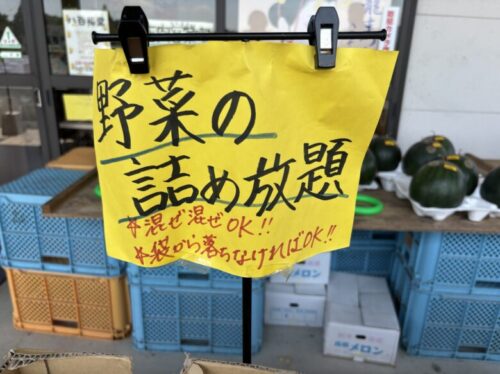 野菜の
詰め放題
*混ぜ混ぜOK!!
*袋から落ちなければOK!!
メロン
メロン